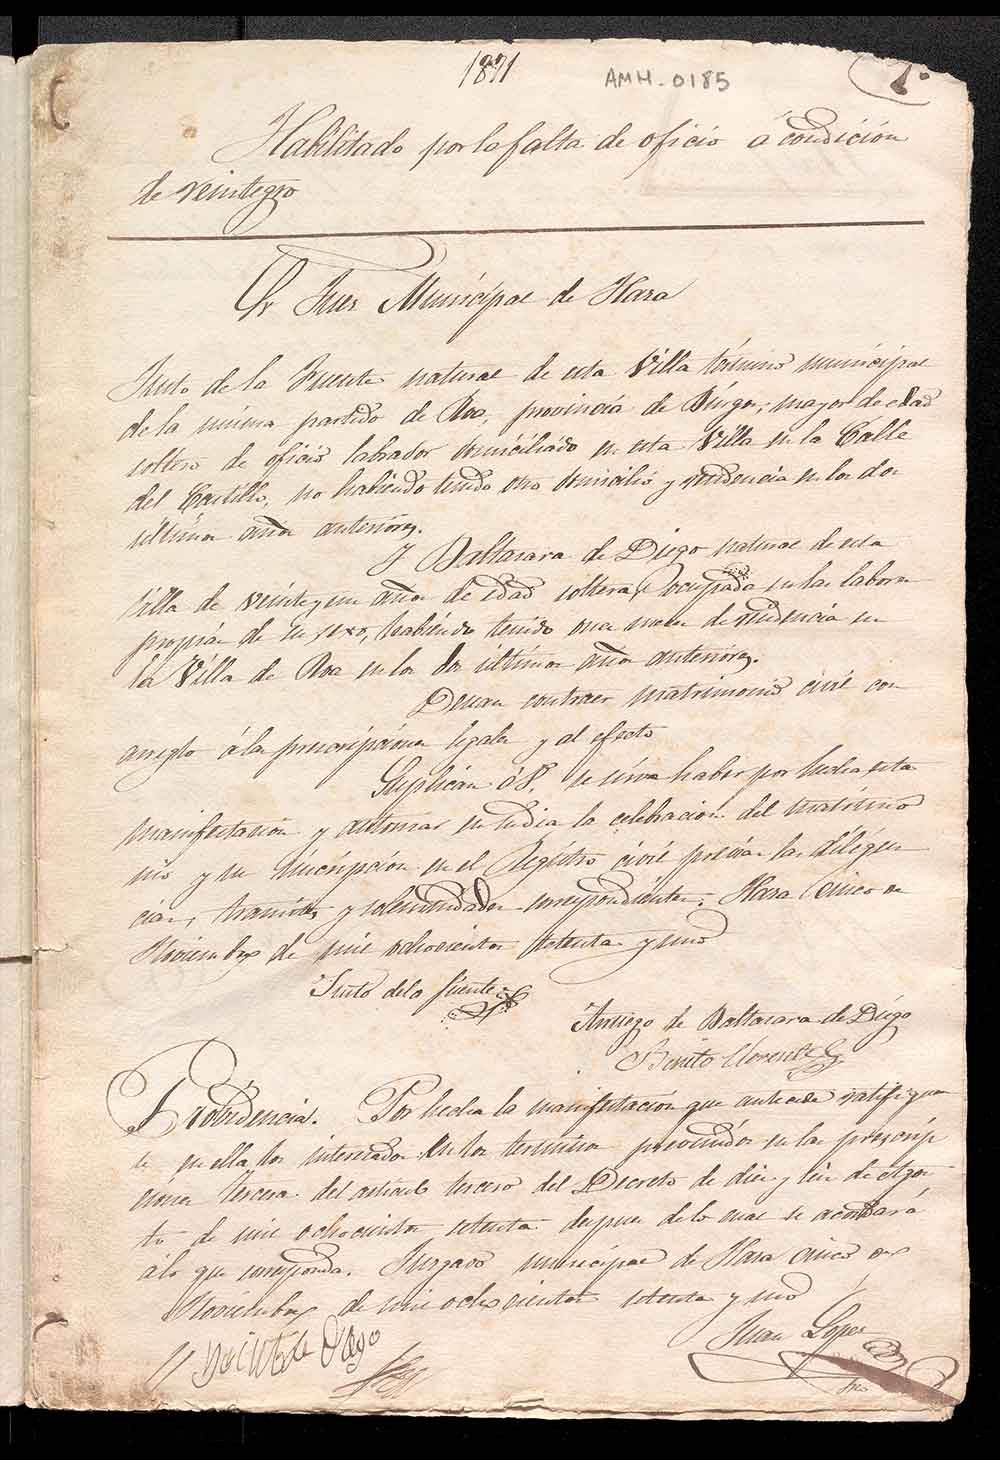 1871
AMH-0185
1º
Habilitado por la falta de oficio á condición
de reintegro
Sr Juez Múnicipal de Haza
Justo de la Fuente natural de esta Villa término municipal
de la misma partido de Roa, provincia de Búrgos, mayor de edad
soltero de oficio labrador domiciliado en esta Villa en la Calle
del Castillo, no habiendo tenido otro domicilio y residencia en los dos
últimos años anteriores.
Y Baltasara de Diego natural de esta
Villa de veinte y un años de edad soltera, ocupada en las labores
propias de su sexo, habiendo tenido once meses de residencia en
la Villa de Roa en los dos últimos años anteriores.
Desean contraer matrimonio civil con
arreglo á las prescripciones legales y al efecto
Suplican á V. se sirva haber por hecha esta
manifestación y autorizar en su dia la celebración del matrimo
nio y su inscripción en el Registro civil prévias las diligen
cias, tramites y solemnidades correspondientes. Haza cinco de
Noviembre de mil ochocientos setenta y uno
Justo dela fuente
Arruego de Baltasara de Diégo
Benito Llorente
Probidencia. Por hecha la manifestación que antecede ratifiquen
se en ella los interesados en los terminos prevenidos en la prescrip
ciones tercera del artículo tercero del Decreto de diez y seis de Agos
to de mil ochocientos setenta despues de lo cual se acordará
á lo que corresponda. Juzgado municipal de Haza cinco de
Noviembre de mil ochocientos setenta y uno
de Diego
Juan Lopez
Srio